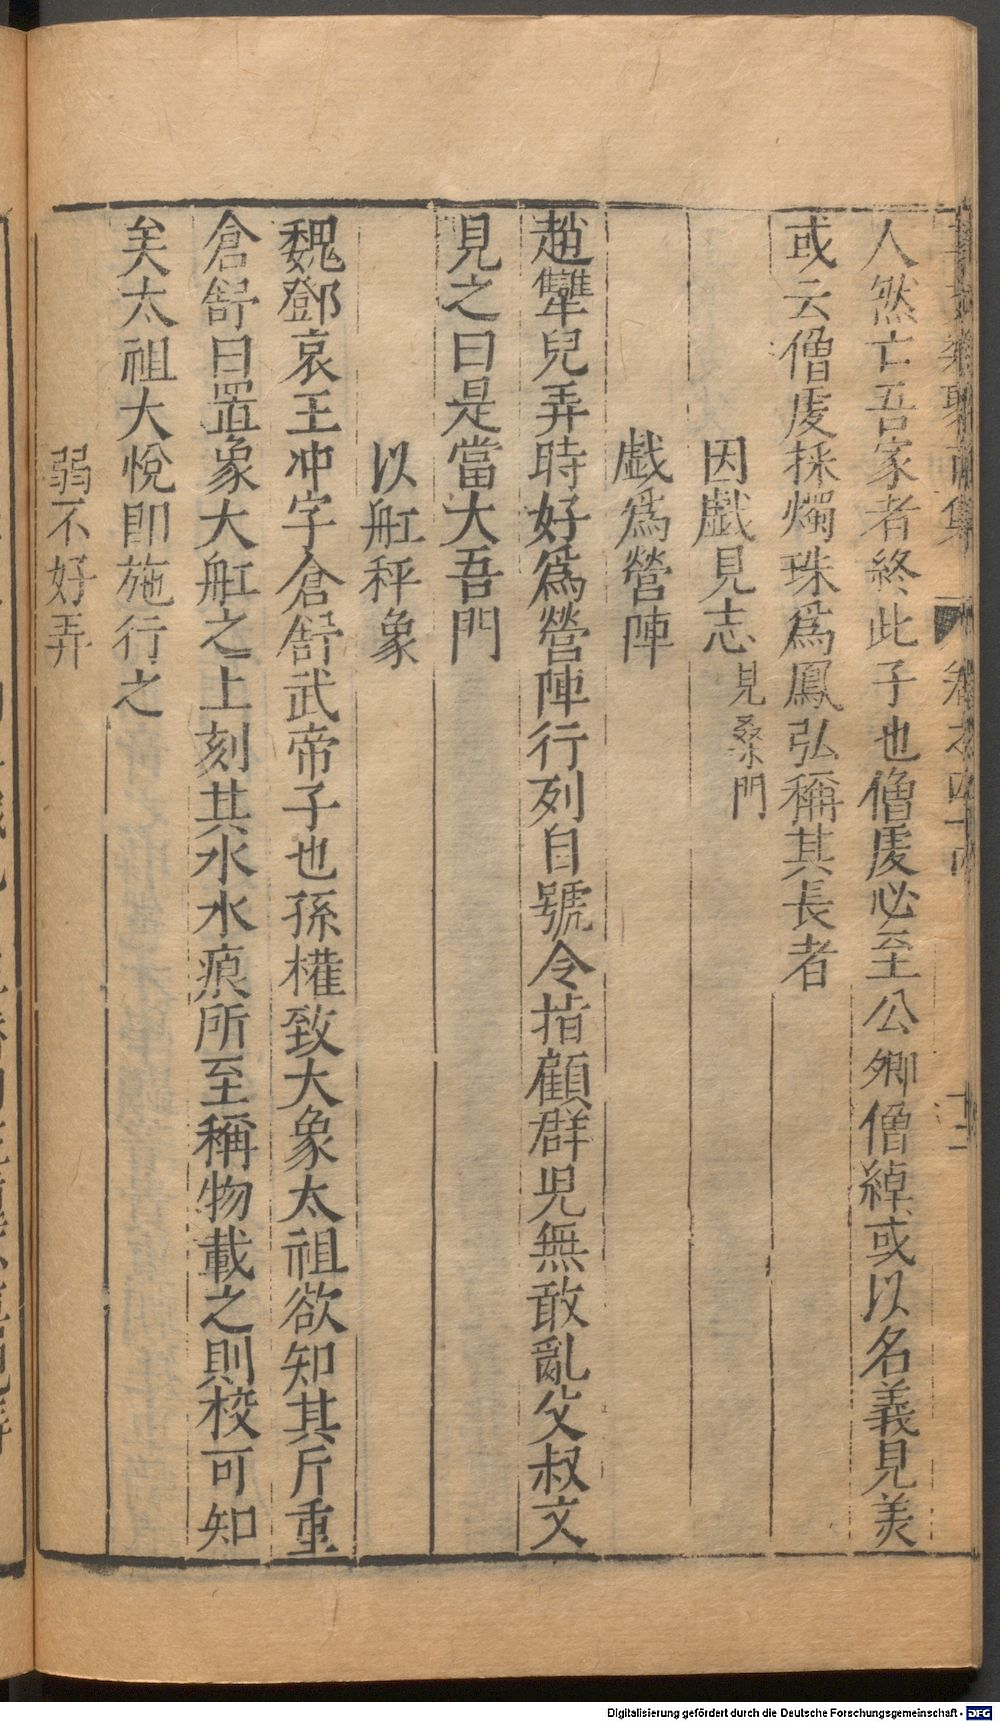 人然亡吾家者終此子也僧虔必至公卿僧綽或以名義見美
或云僧虔採燭珠爲鳳弘稱其長者
因戱見志見桑門
戱爲營陣
趙犨兒弄時好爲營陣行列自號令指顧群児無敢亂父叔文
見之曰是當大吾門
以舡秤象
魏鄧哀王冲字倉舒武帝子也孫權致大象太祖欲知其斤重
倉舒曰置象大舡之上刻其水水痕所至稱物載之則校可知
矣太祖大悅即施行之
弱不好弄
Digitalisierung gefördert durch die Deutsche Forschungsgemeinschaft - DFG